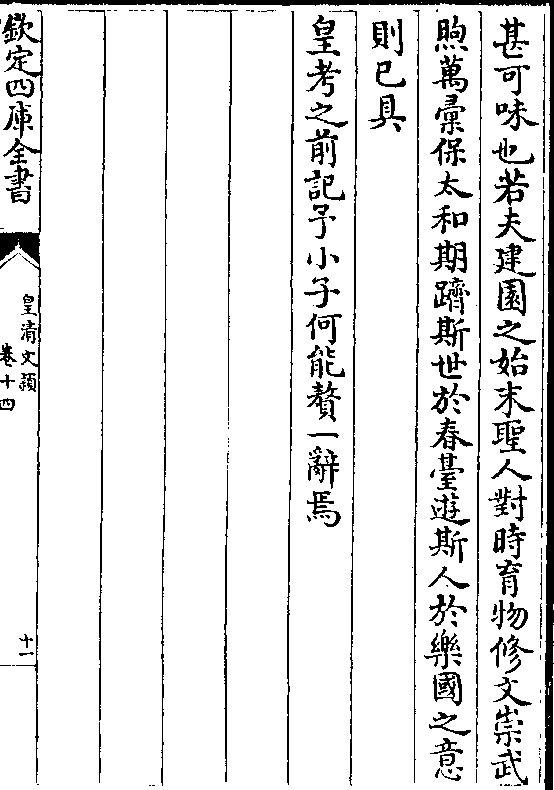 甚可味也若夫建園之始末聖人對時育物修文崇武
煦萬彚保太和期躋斯世於春臺遊斯人於樂國之意
則已具
皇考之前記予小子何能贅一辭焉
欽定四庫全書
皇清文穎
卷十四
十一